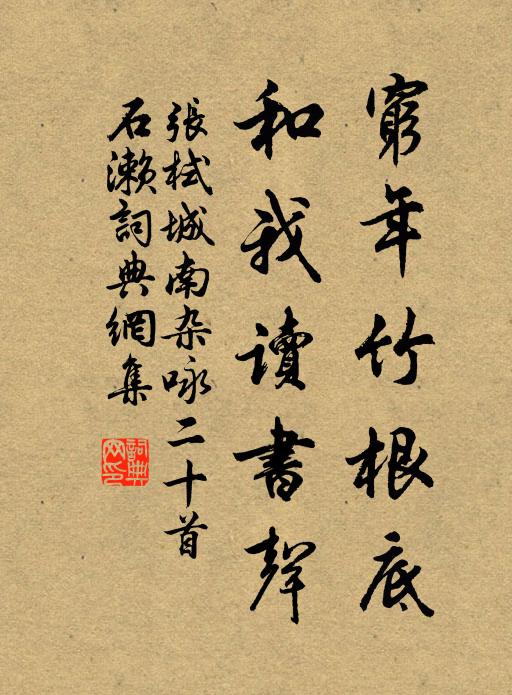 窮年竹根底
和我讀書聲
張栻城南杂咏二十首
石濑詞典網集
詞典网印